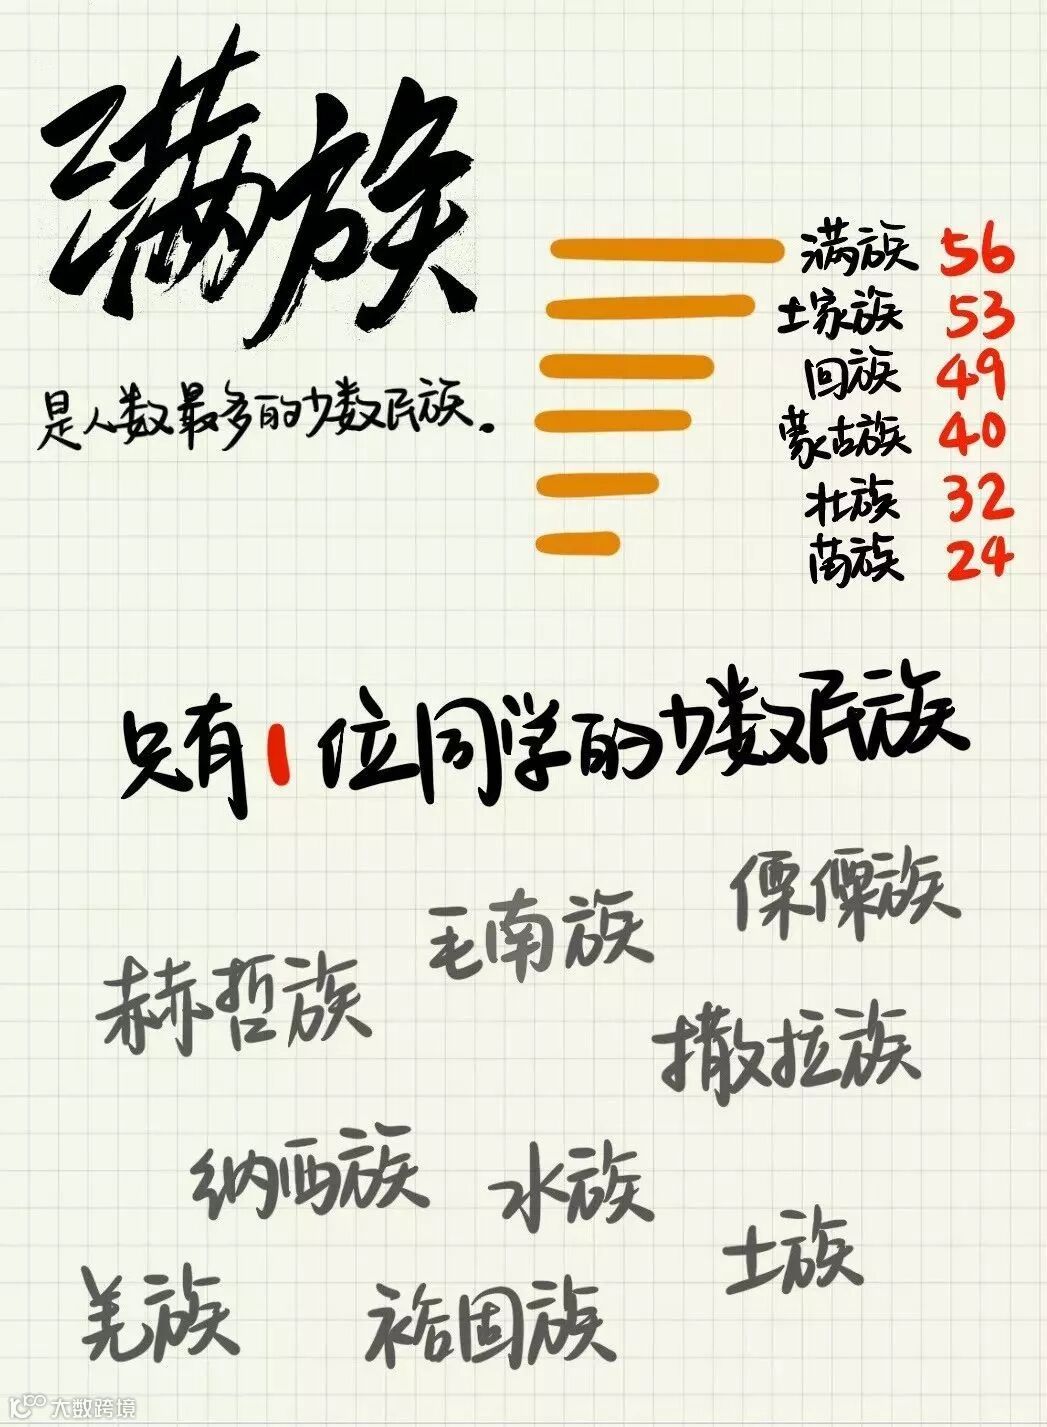 满族
是人数最多的少数民族。
满族 56
土家族 53
回族 49
蒙古族 40
壮族 32
苗族 24
只有1位同学的少数民族
傈僳族
毛南族
赫哲族
撒拉族
纳西族
水族
土族
羌族
裕固族
大数跨境